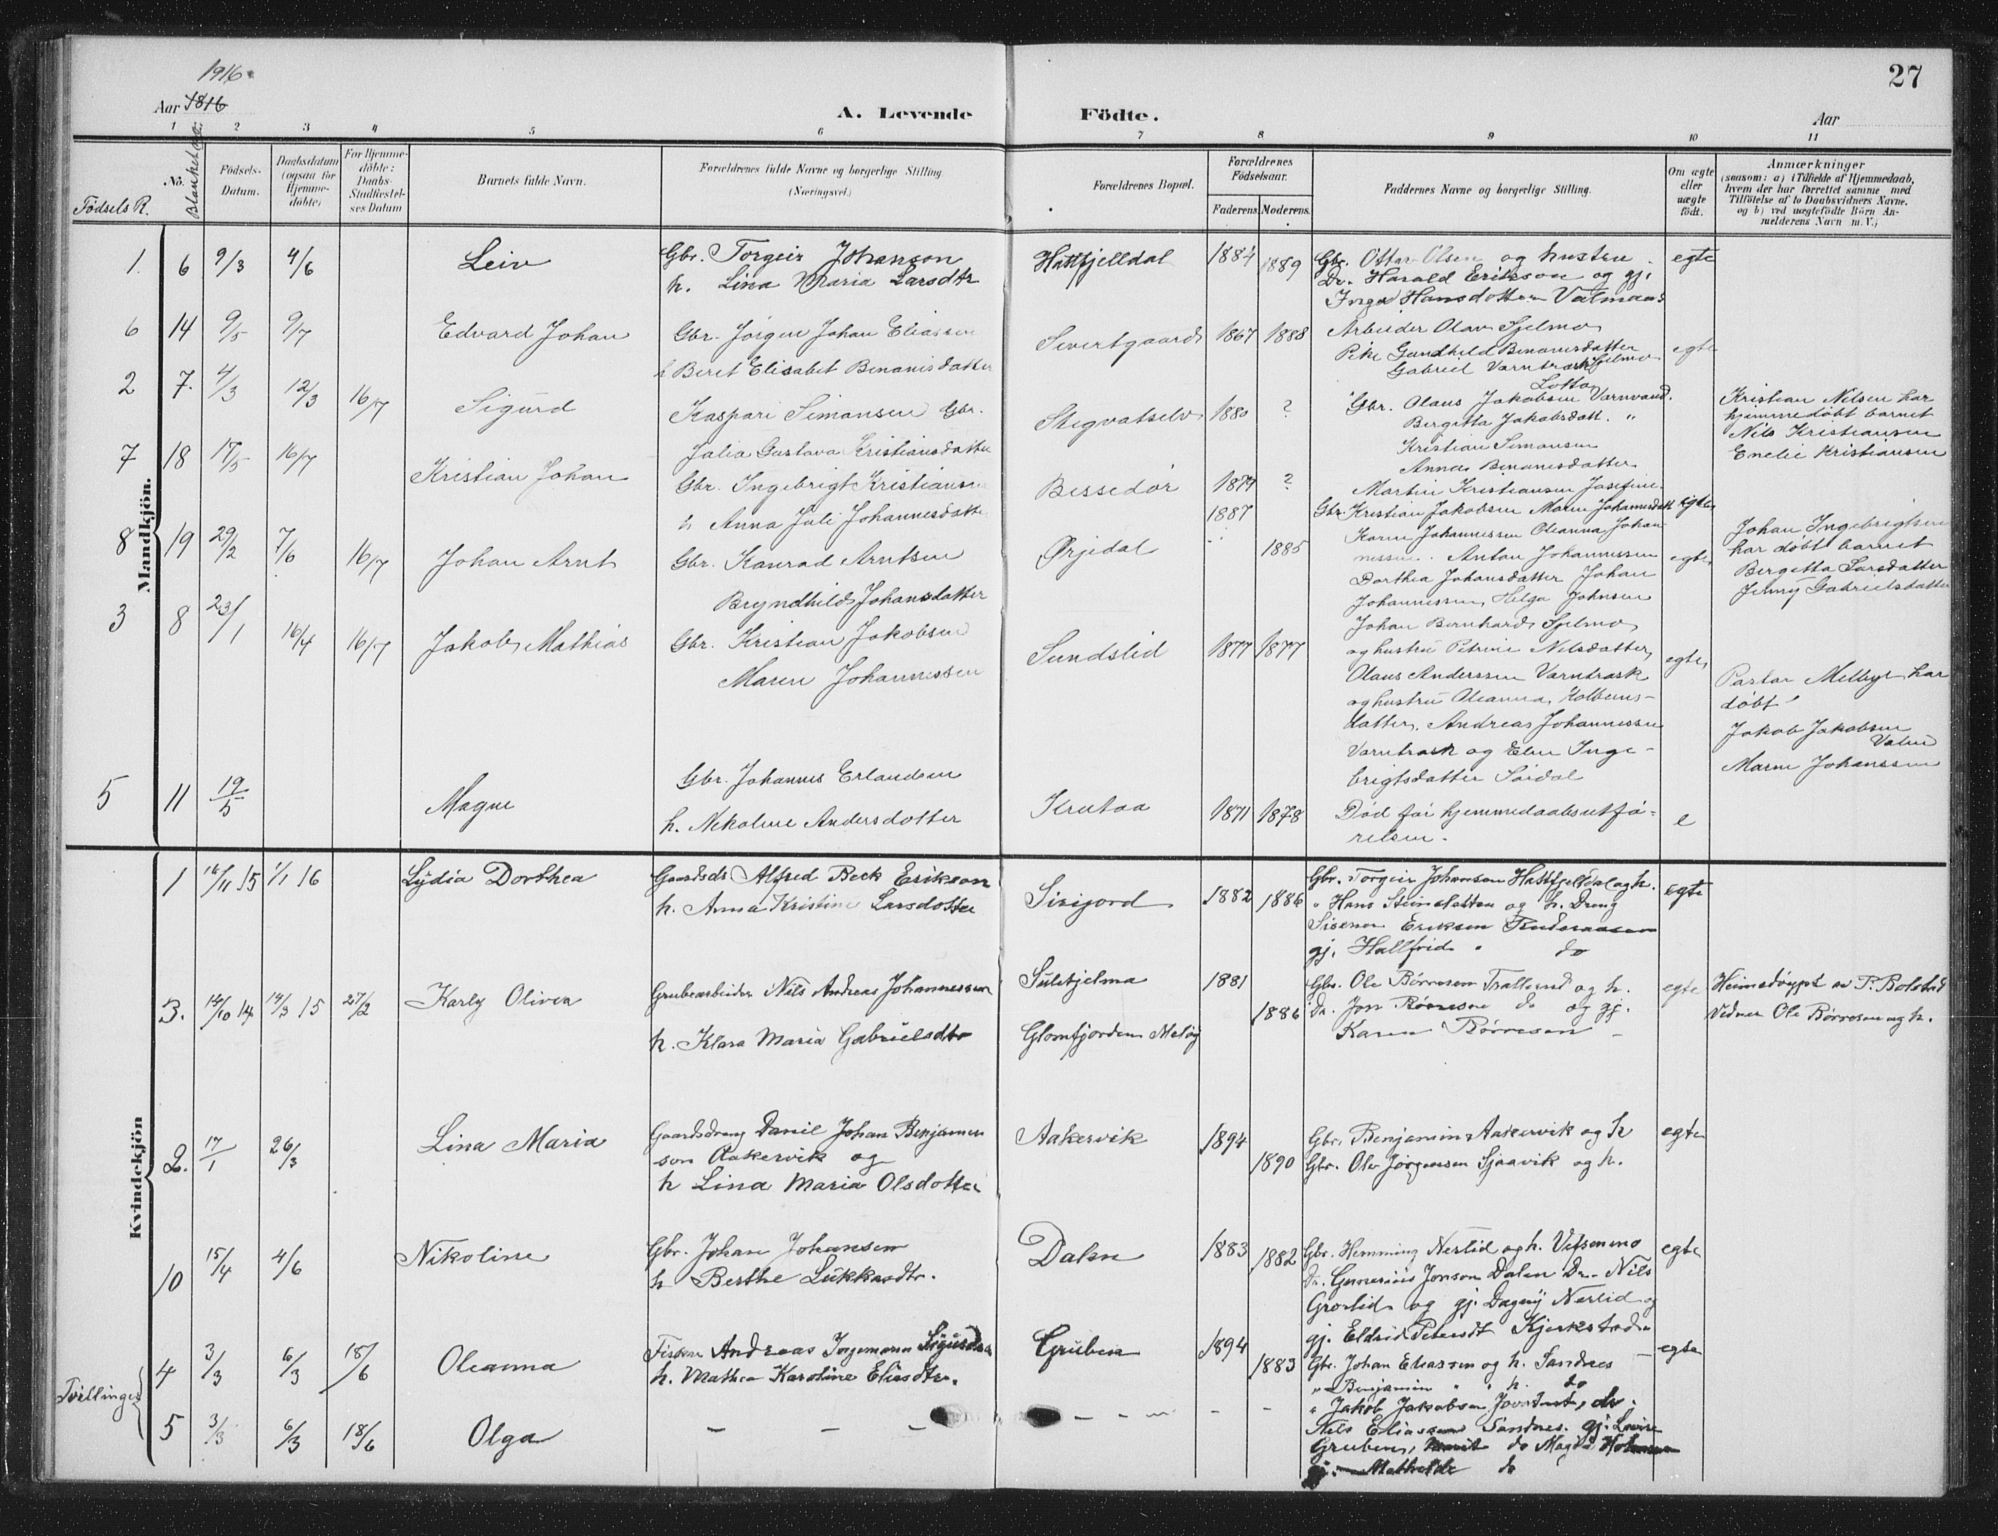 27
1916.
Aar 1816
A. Levende Födte.
Aar
1 2 3 4 5 6 7 8 9 10 11
Födsels R.
No.
Blanket
Födsels-Datum.
Daabsdatum (ogsaa for Hjemmedöbte)
For Hjemmedöbte: Daabs-Stadfæstelses Datum
Barnets fulde Navn.
Forældrenes fulde Navne og borgerlige Stilling (Næringsvei.)
Forældrenes Bopæl.
Forældrenes Födselsaar.
Faderens. Moderens.
Faddernes Navne og borgerlige Stilling.
Om ægte eller uægte födt.
Anmærkninger
(saasom: a) i Tilfælde af Hjemmedaab, hvem der har forrettet samme med Tilföielse af to Daabsvidners Navne. og b) ved uægtefödte Börn Anmelderens Navn m. V.)
Mandkjön.
1. 6 9/3 4/6 Leiv Gbr. Torgeir Johanson Hattfjelldal 1884 1889 Gbr. Ottar Olsen og hustru egte
h. Lina Maria Larsdtr Dr. Harald Erikson og gj.
Inga Hansdotter
6 14 9/5 9/7 Edvard Johan Gbr. Jørgen Johan Eliassen Sivertgaard 1867 1888 Arbeider Olav Sjelmo egte
Beret Elisabet Benonisdatter Pike Gundhild Benonisdatter
Gabriel Varntræsk
2 7. 4/3 12/3 16/7 Sigurd Kaspari Simonsen Gbr. Stegvatselv 1880 ? Gbr. Olaus Jakobsen Varnvand. Kristian Nilsen har
Julia Gustava Kristiansdatter Bergitta Jakobsdatt. " hjemmedøbt barnet
Kristian Simonsen Nils Kristiansen
Anna Benonisdatter Enelie Kristiansen
7 18 17/5 16/7 Kristian Johan Gbr. Ingebrigt Kristiansen Bessedør 1879 ? Martin Kristiansen Josefine
h Anna Juli Johannesdatter 1887 Gbr. Kristian Jakobsen Maren Johannesdatt egte
Karen Johannessen Oleanna Johan
8 19 29/2 7/6 16/7 Johan Arnt Gbr. Konrad Arntsen Ørjedal 1885 nessen. Anton Johannessen egte Johan Ingebrigtsen
Bryndhild Johansdatter Dorthea Johansdatter Johan har døbt barnet
Johannessen, Helga Johnsen Bergetta Larsdatter
Jenny Gabrielsdatter
3 8 23/1 16/4 16/7 Jakob Mathias Gbr. Kristian Jakobsen Sundslid 1877 1877 Johan Bernhard Sjelmo
Maren Johannessen og hustru Petrine Nilsdatter, egte
Olaus Anderssen Varntræsk Pastor Melbye har
og hustru Oleanna døbt
datter. Andreas Johannessen Jakob Jakobsen
Varntræsk og Elen Inge-
brigtsdatter Maren Johanssen
5 11 19/5 Magne Gbr. Johannes Erlandsen Krutaa 1871 1878 Død før hjemmedaabsutfø- e
h. Nikoline Andersdotter relsen.
Kvindekjön
1 16/11 15 1/1 16 Lydia Dorthea Gaardsdr Alfred Beck Erikson Sirijord 1882 1886 Gbr. Torgeir Johansen Hattfjelldal og h. egte
h. Anna Kristine Larsdotter " Hans Steinslatten og h. Dreng
Eriksen
gj. Hallfrid " do
3. 14/10 14 14/3 15 27/2 Karly Olivia Grubearbeider Nils Andreas Johannessen Sulitjelma 1881 Gbr. Ole Børresen og h. egte Heimedøypt av P. Bolstad
h. Klara Maria Gabrielsdtr Glomfjorden Meløy 1886 Dr. Jon Børresen do og gj. Vidner Ole Børresen og h.
Karen Børresen
2. 17/1 26/3 Lina Maria Gaardsdreng Daniel Johan Benjamin Aakervik 1894 Gbr. Benjamin Aakervik og h egte
son Aakervik og 1890 Gbr. Ole Jørgensen Sjaavik og h.
h Lina Maria Olsdotter
10 15/4 4/6 Nikoline Gbr. Johan Johansen Dalen 1883 1882 Gbr. Hemming Nerlid og h. Vefsenmo egte
h Berthe Lukkasdtr. Dr. Jonson Dalen Dr. Nils
Grovlid og gj. Dagny Nerlid og
gj. Eldrid Petersdt Kjerkstad
Tvillinger
4 3/3 6/3 18/6 Oleanna Fisker Andreas Sigurdsen Gruben 1894 egte
h. Mathea Karoline Eliasdtr. 1883 Gbr. Johan Eliassen og h. Sandnes
" Benjamin " " h. do
" Jakob Jakobsen
5 3/3 6/3 18/6 Olga Nils Eliassen Sandnes. gj. Lovise
Gruben, Marit do Magda
gj. Mathilde do